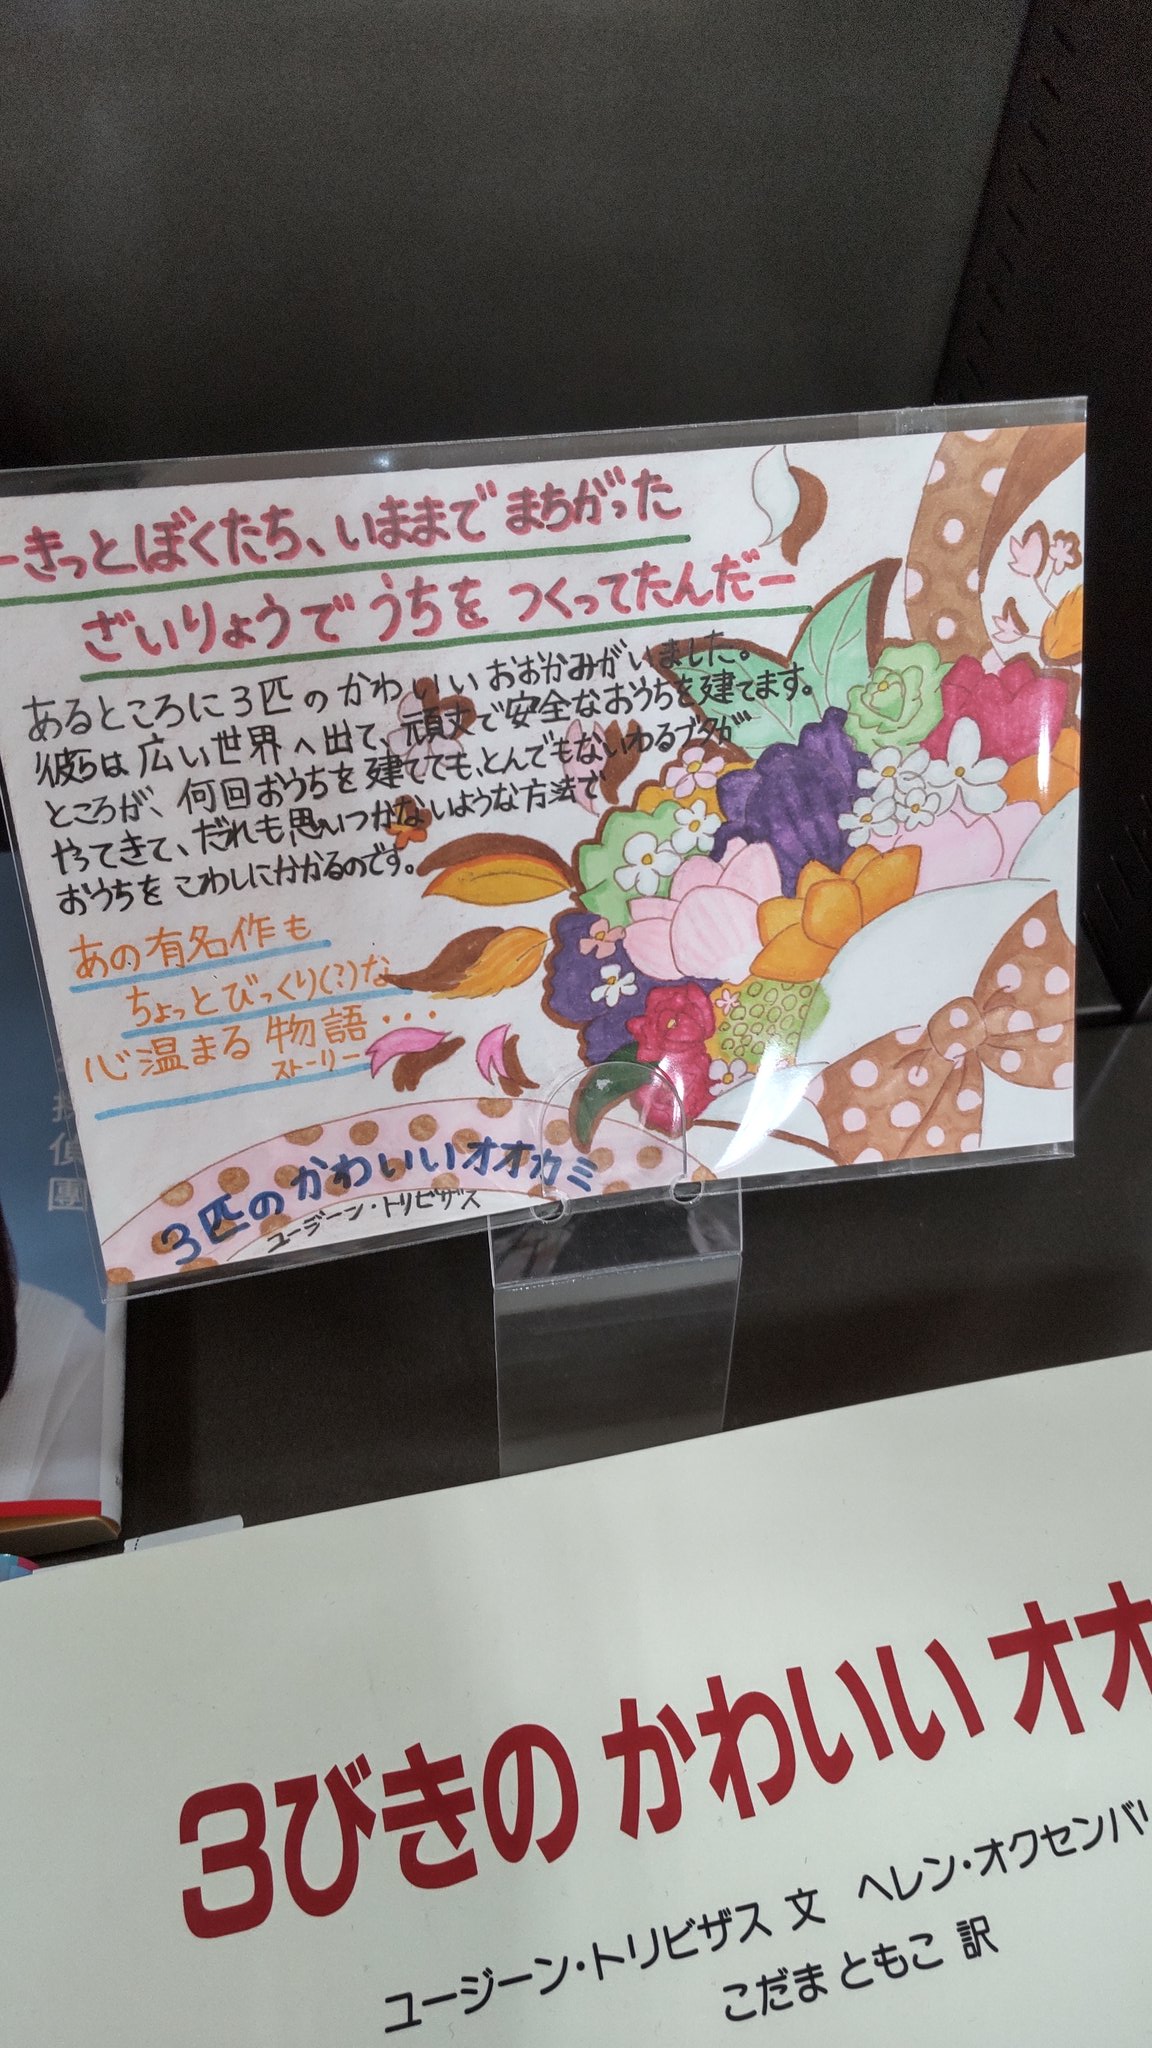 ーきっとぼくたち、いままでまちがった
ざいりょうでうちをつくってたんだー
あるところに3匹のかわいいおおかみがいました。
彼らは広い世界へ出て、頑丈で安全なおうちを建てます。
ところが、何回おうちを建てても、とんでもないわるブタが
やってきて、だれも思いつかないような方法で
おうちをこわしにかかるのです。
あの有名作も
ちょっとびっくり(?)な
心温まる物語・・・
ストーリー
3匹のかわいいオオカミ
ユージーン・トリビザス
偵團
3びきの かわいい オオ
ユージーン・トリビザス 文 ヘレン・オクセンバ
こだま ともこ 訳